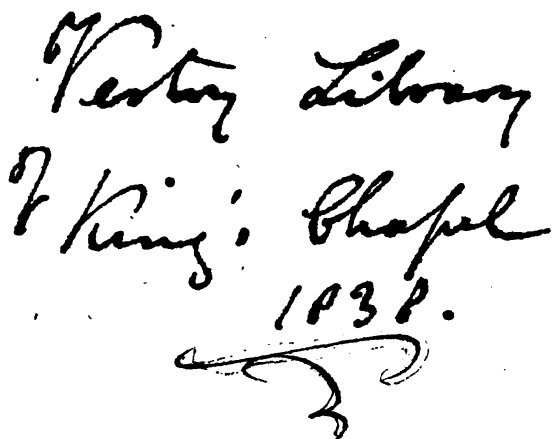 Vestry Library
of King's Chapel
1838.